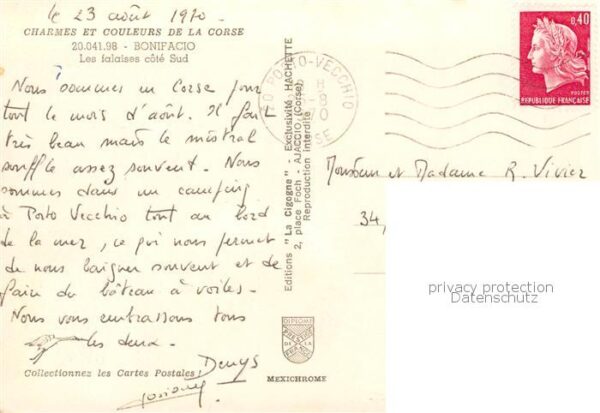 le 23 août 1970
CHARMES ET COULEURS DE LA CORSE
20.041.98 - BONIFACIO
Les falaises côté Sud
Nous sommes en Corse pour
tout le mois d'août. Il fait
très beau mais le mistral
souffle assez souvent. Nous
sommes dans un camping
à Porto Vecchio tout au bord
de la mer, ce qui nous permet
de nous baigner souvent et de
faire du bâteau à voiles.
Nous vous embrassons tous
les deux.
Denys
Josiane
Collectionnez les Cartes Postales!
Editions "La Cigogne" - Exclusivité HACHETTE
2, place Foch - AJACCIO (Corse)
Reproduction interdite
DIPLOME
PRESTIGE
DE LA FRANCE
MEXICHROME
PORTO-VECCHIO
0,40
POSTES
REPUBLIQUE FRANÇAISE
Monsieur et Madame R. Vivier
34,
privacy protection
Datenschutz